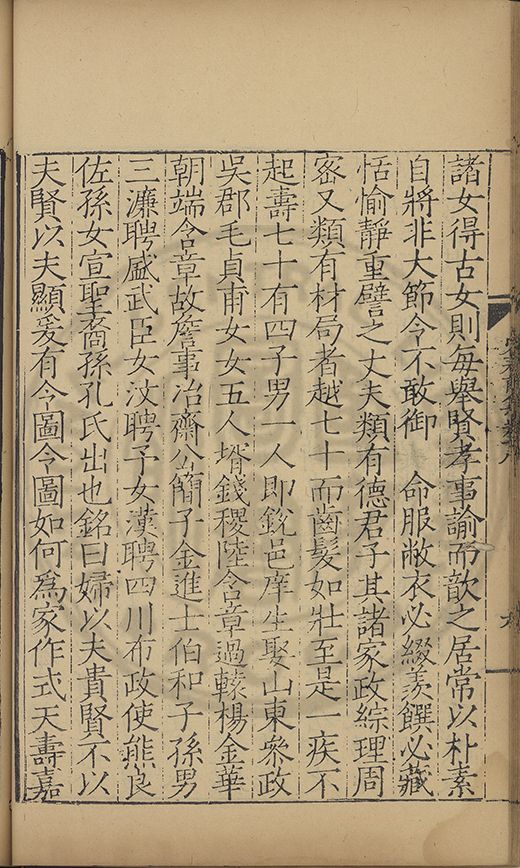 諸女得古女則每舉賢孝事諭而歆之居常以朴素
自將非大節令不敢御　命服敝衣必綴羨饌必藏
恬愉靜重譬之丈夫類有德君子其諸家政綜理周
密又類有材局者越七十而齒髮如壯至是一疾不
起壽七十有四子男一人即銳邑庠生娶山東參政
吳郡毛貞甫女女五人壻錢稷陸含章過轅楊金華
朝端含章故詹事冶齋公簡子金進士伯和子孫男
三濂聘盛武臣女汶聘予女漢聘四川布政使熊良
佐孫女宣聖裔孫孔氏出也銘曰婦以夫貴賢不以
夫賢以夫顯爰有令圖令圖如何爲家作式天壽嘉